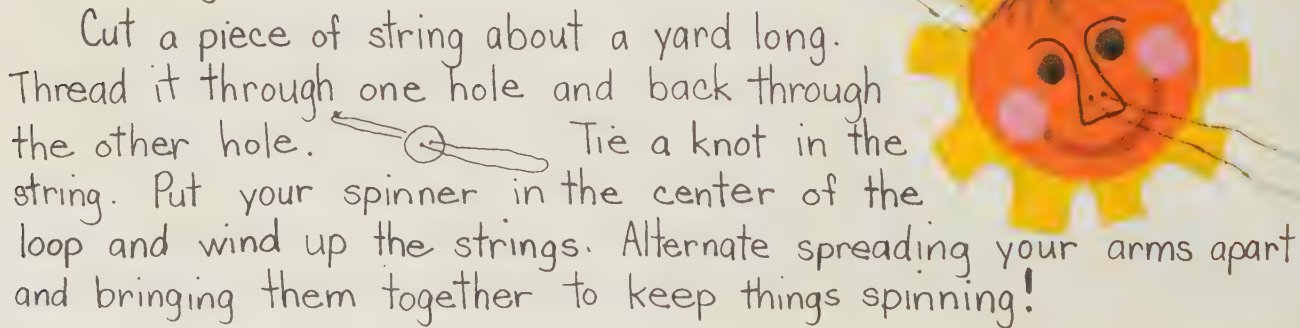 Cut a piece of string about a yard long.
Thread it through one hole and back through
the other hole. Tie a knot in the
string. Put your spinner in the center of the
loop and wind up the strings. Alternate spreading your arms apart
and bringing them together to keep things spinning!